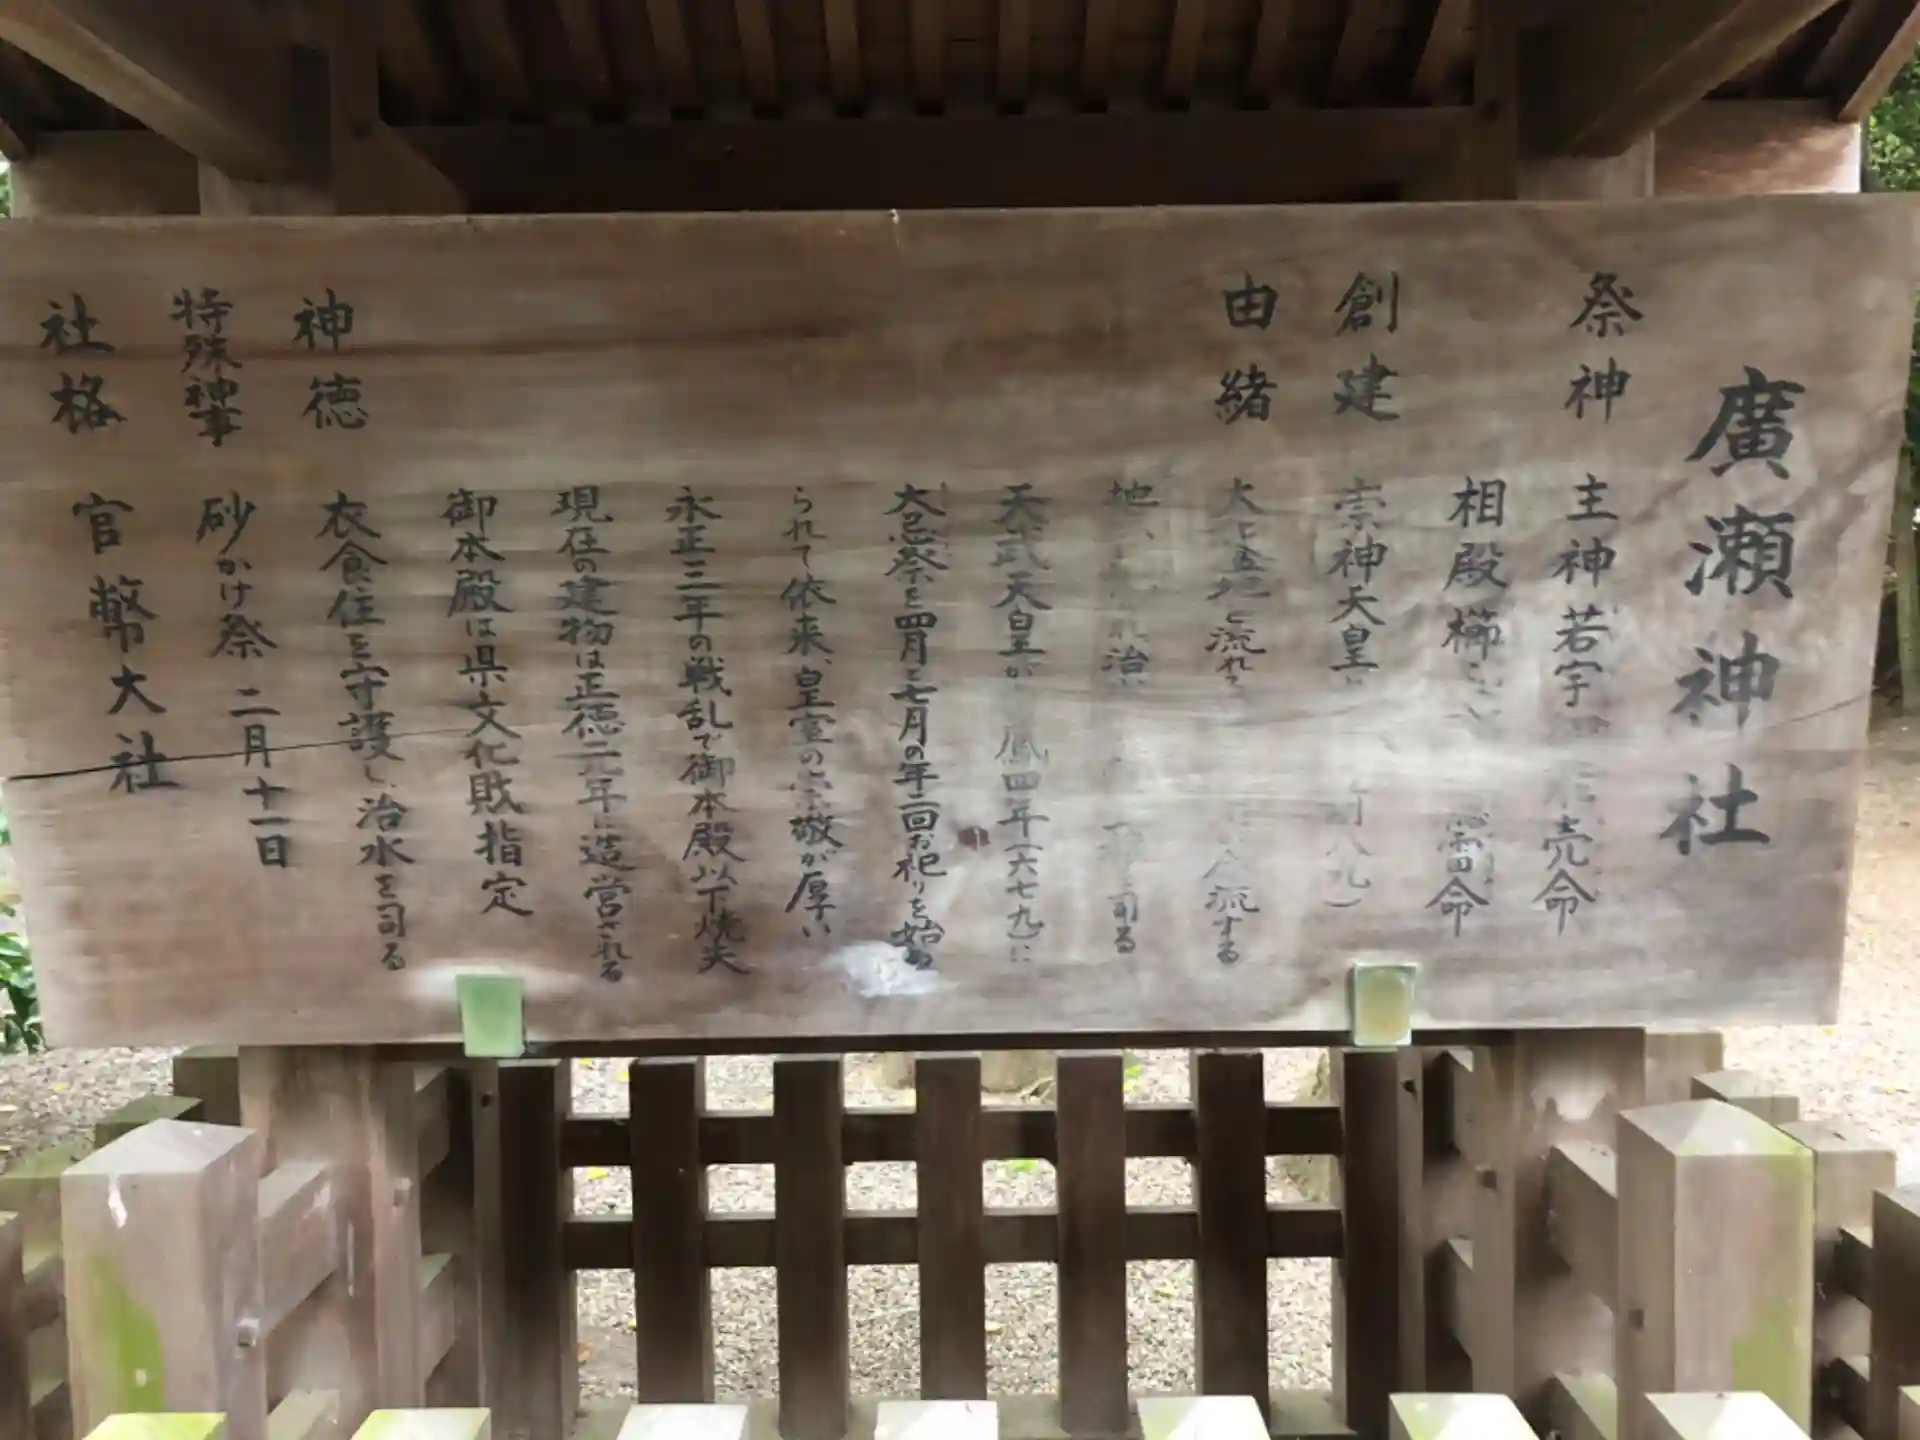 廣瀬神社
祭神 主神若宇 売命
相殿櫛 命
創建 崇神天皇 八九)
由緒 大 と流れ 流する
地 治 司る
天武天皇が 鳳四年(六七九)に
大忌祭を四月と七月の年二回お祀りを始め
られて依来、皇室の崇敬が厚い
永正三年の戦乱で御本殿以下焼失
現在の建物は正徳二年に造営される
御本殿は県文化敗指定
神徳 衣食住を守護し、治水を司る
特殊神事 砂かけ祭 二月十一日
社格 官幣大社